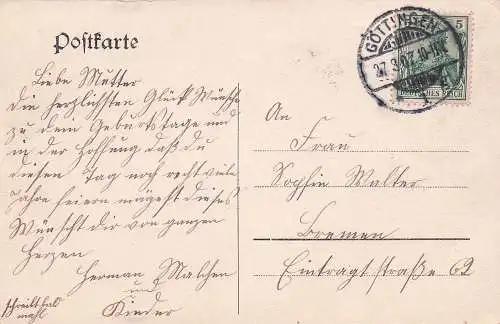 Postkarte
Liebe Mutter
die herzlichsten Glück Wünsche
zu dem Geburtstage und
in der Hoffung daß du
diesen Tag noch recht viele
Jahre feiern mögest dieses
Wünscht dir von ganzen
Herzen
Herman Malchen
und
Kinder
schreibt bald
mahl
GÖTTINGEN
5
DEUTSCHES REICH
An
Frau
Sophie Walter
Bremen
Eintrachtstraße 62